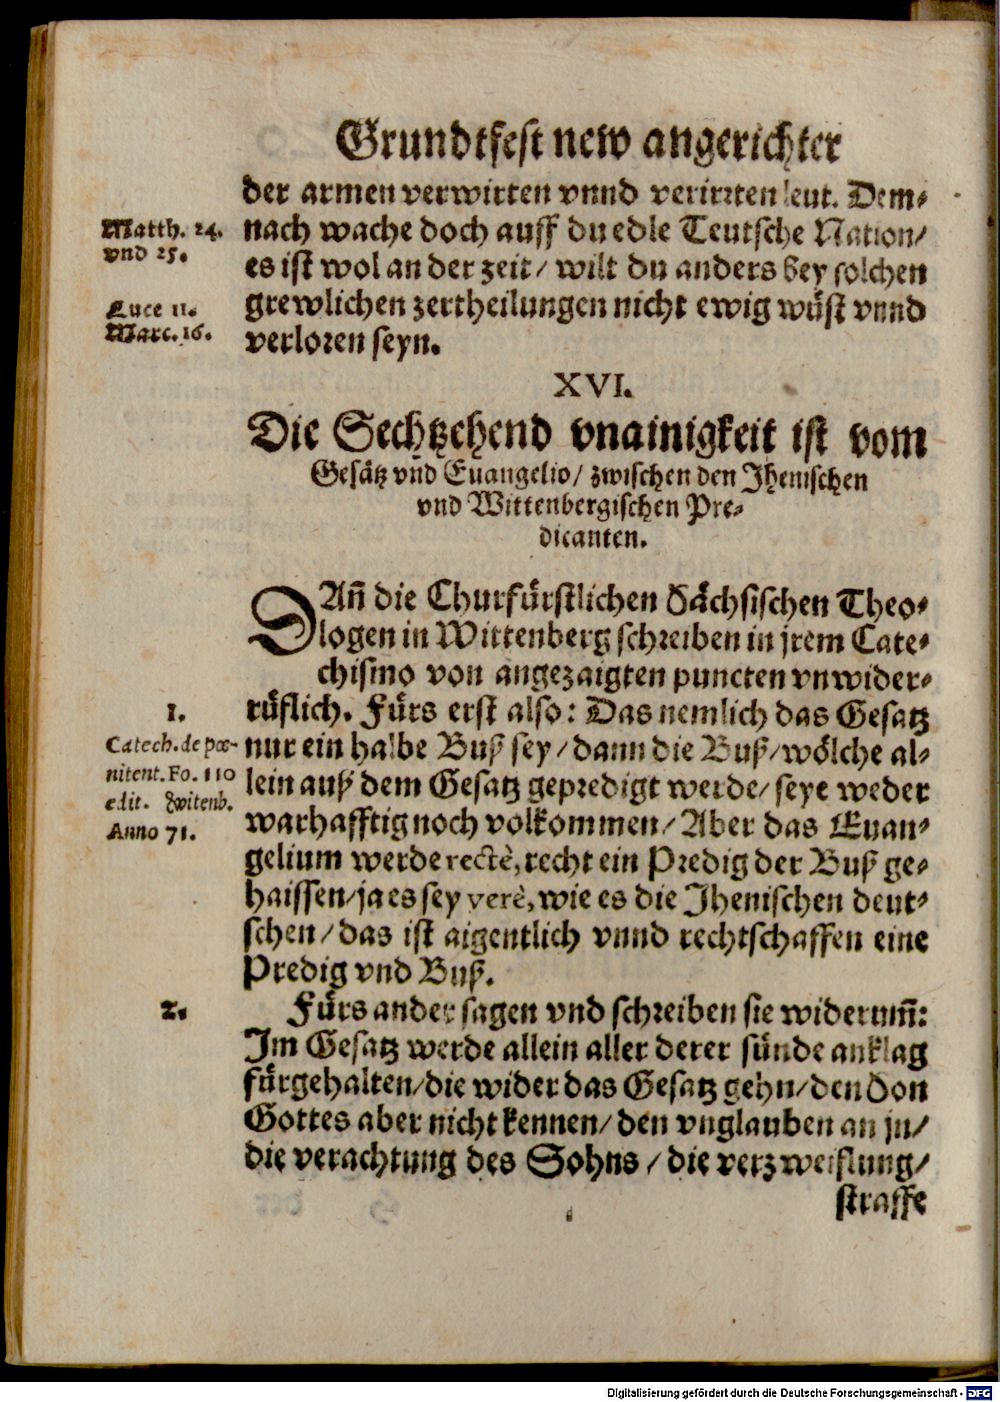 Grundtfest new angerichter
der armen verwirten vnnd verirꝛten leut. Dem-
nach wache doch auff du edle Teutsche Nation/
es ist wol an der zeit/ wilt du anders bey solchen
grewlichen zertheilungen nicht ewig wůst vnnd
verloꝛen seyn.
Matth. 24.
vnd 25.
Luce 11.
Marc. 16.
XVI.
Die Sechtzehend vnainigkeit ist vom
Gesätz vñd Euangelio/ zwischen den Jhenischen
vnd Wittenbergischen Pre-
dicanten.
DAñ die Churfürstlichen Sächsischen Theo-
logen in Wittenberg schreiben in jrem Cate-
chismo von angezaigten puncten vnwider-
rüflich. Fürs erst also: Das nemlich das Gesatz
nur ein halbe Buß sey/ dann die Buß/ wölche al-
lein auß dem Gesatz gepredigt werde/ seye weder
warhafftig noch volkommen/ Aber das Euan-
gelium werde rectè, recht ein Predig der Buß ge-
haissen/ ja es sey verè, wie es die Jhenischen deut-
schen/ das ist aigentlich vnnd rechtschaffen eine
Predig vnd Buß.
1.
Catech. de pœ-
nitent. Fo. 110
edit. Witenb.
Anno 71.
2.
Fürs ander sagen vnd schreiben sie widerum̃:
Im Gesatz werde allein aller derer sünde anklag
fürgehalten/ die wider das Gesatz gehn/ den Son
Gottes aber nicht kennen/ den vnglauben an jn/
die verachtung des Sohns/ die verzweiflung/
straffe
Digitalisierung gefördert durch die Deutsche Forschungsgemeinschaft - DFG